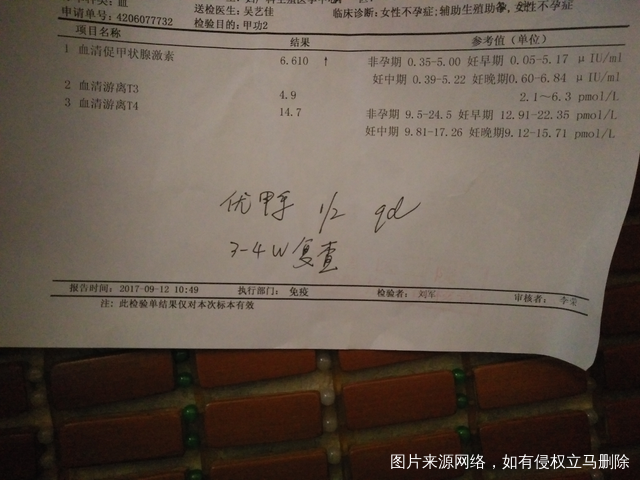 送检医生：吴艺佳
临床诊断：女性不孕症;辅助生殖助孕，女性不孕症
申请单号：4206077732
检验目的：甲功2
项目名称 结果 参考值（单位）
1 血清促甲状腺激素 6.610 ↑ 非孕期 0.35-5.00 妊早期 0.05-5.17 μIU/ml
妊中期 0.39-5.22 妊晚期0.60-6.84 μIU/ml
2 血清游离T3 4.9 2.1～6.3 pmol/L
3 血清游离T4 14.7 非孕期 9.5-24.5 妊早期 12.91-22.35 pmol/L
妊中期 9.81-17.26 妊晚期9.12-15.71 pmol/L
优甲乐 1/2 qd
3-4W复查
报告时间：2017-09-12 10:49 执行部门：免疫 检验者：刘军 审核者：李
注：此检验单结果仅对本次标本有效
图片来源网络，如有侵权立马删除